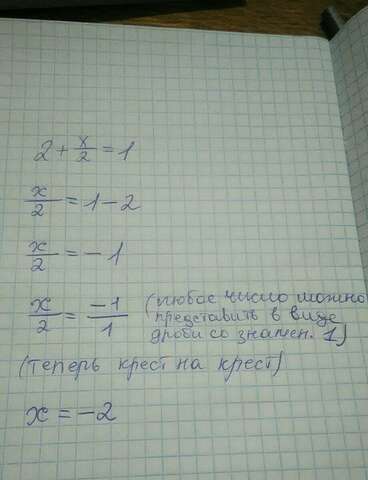 2 + x/2 = 1
x/2 = 1 - 2
x/2 = - 1
x/2 = -1/1 (любое число можно
представить в виде
дроби со знамен. 1)
(теперь крест на крест)
x = -2